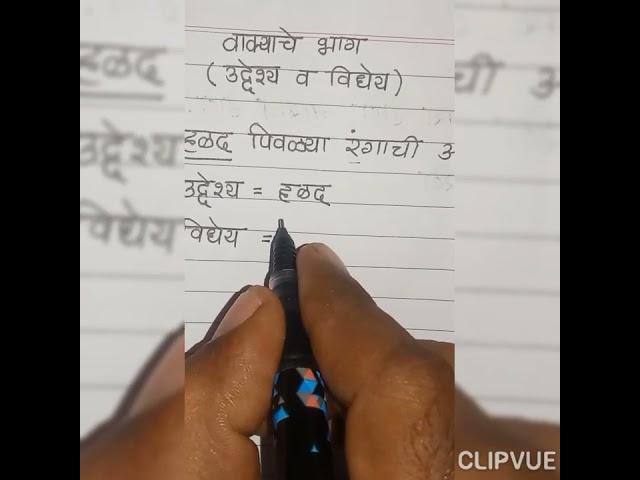 वाक्याचे भाग
(उद्देश्य व विधेय)
हळद पिवळ्या रंगाची अ
उद्देश्य = हळद
विधेय =
CLIPVUE